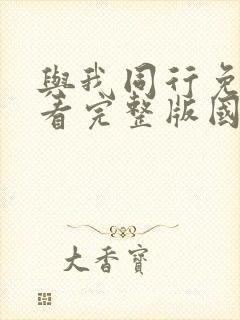 與我同行免
看完整版國
大香寶